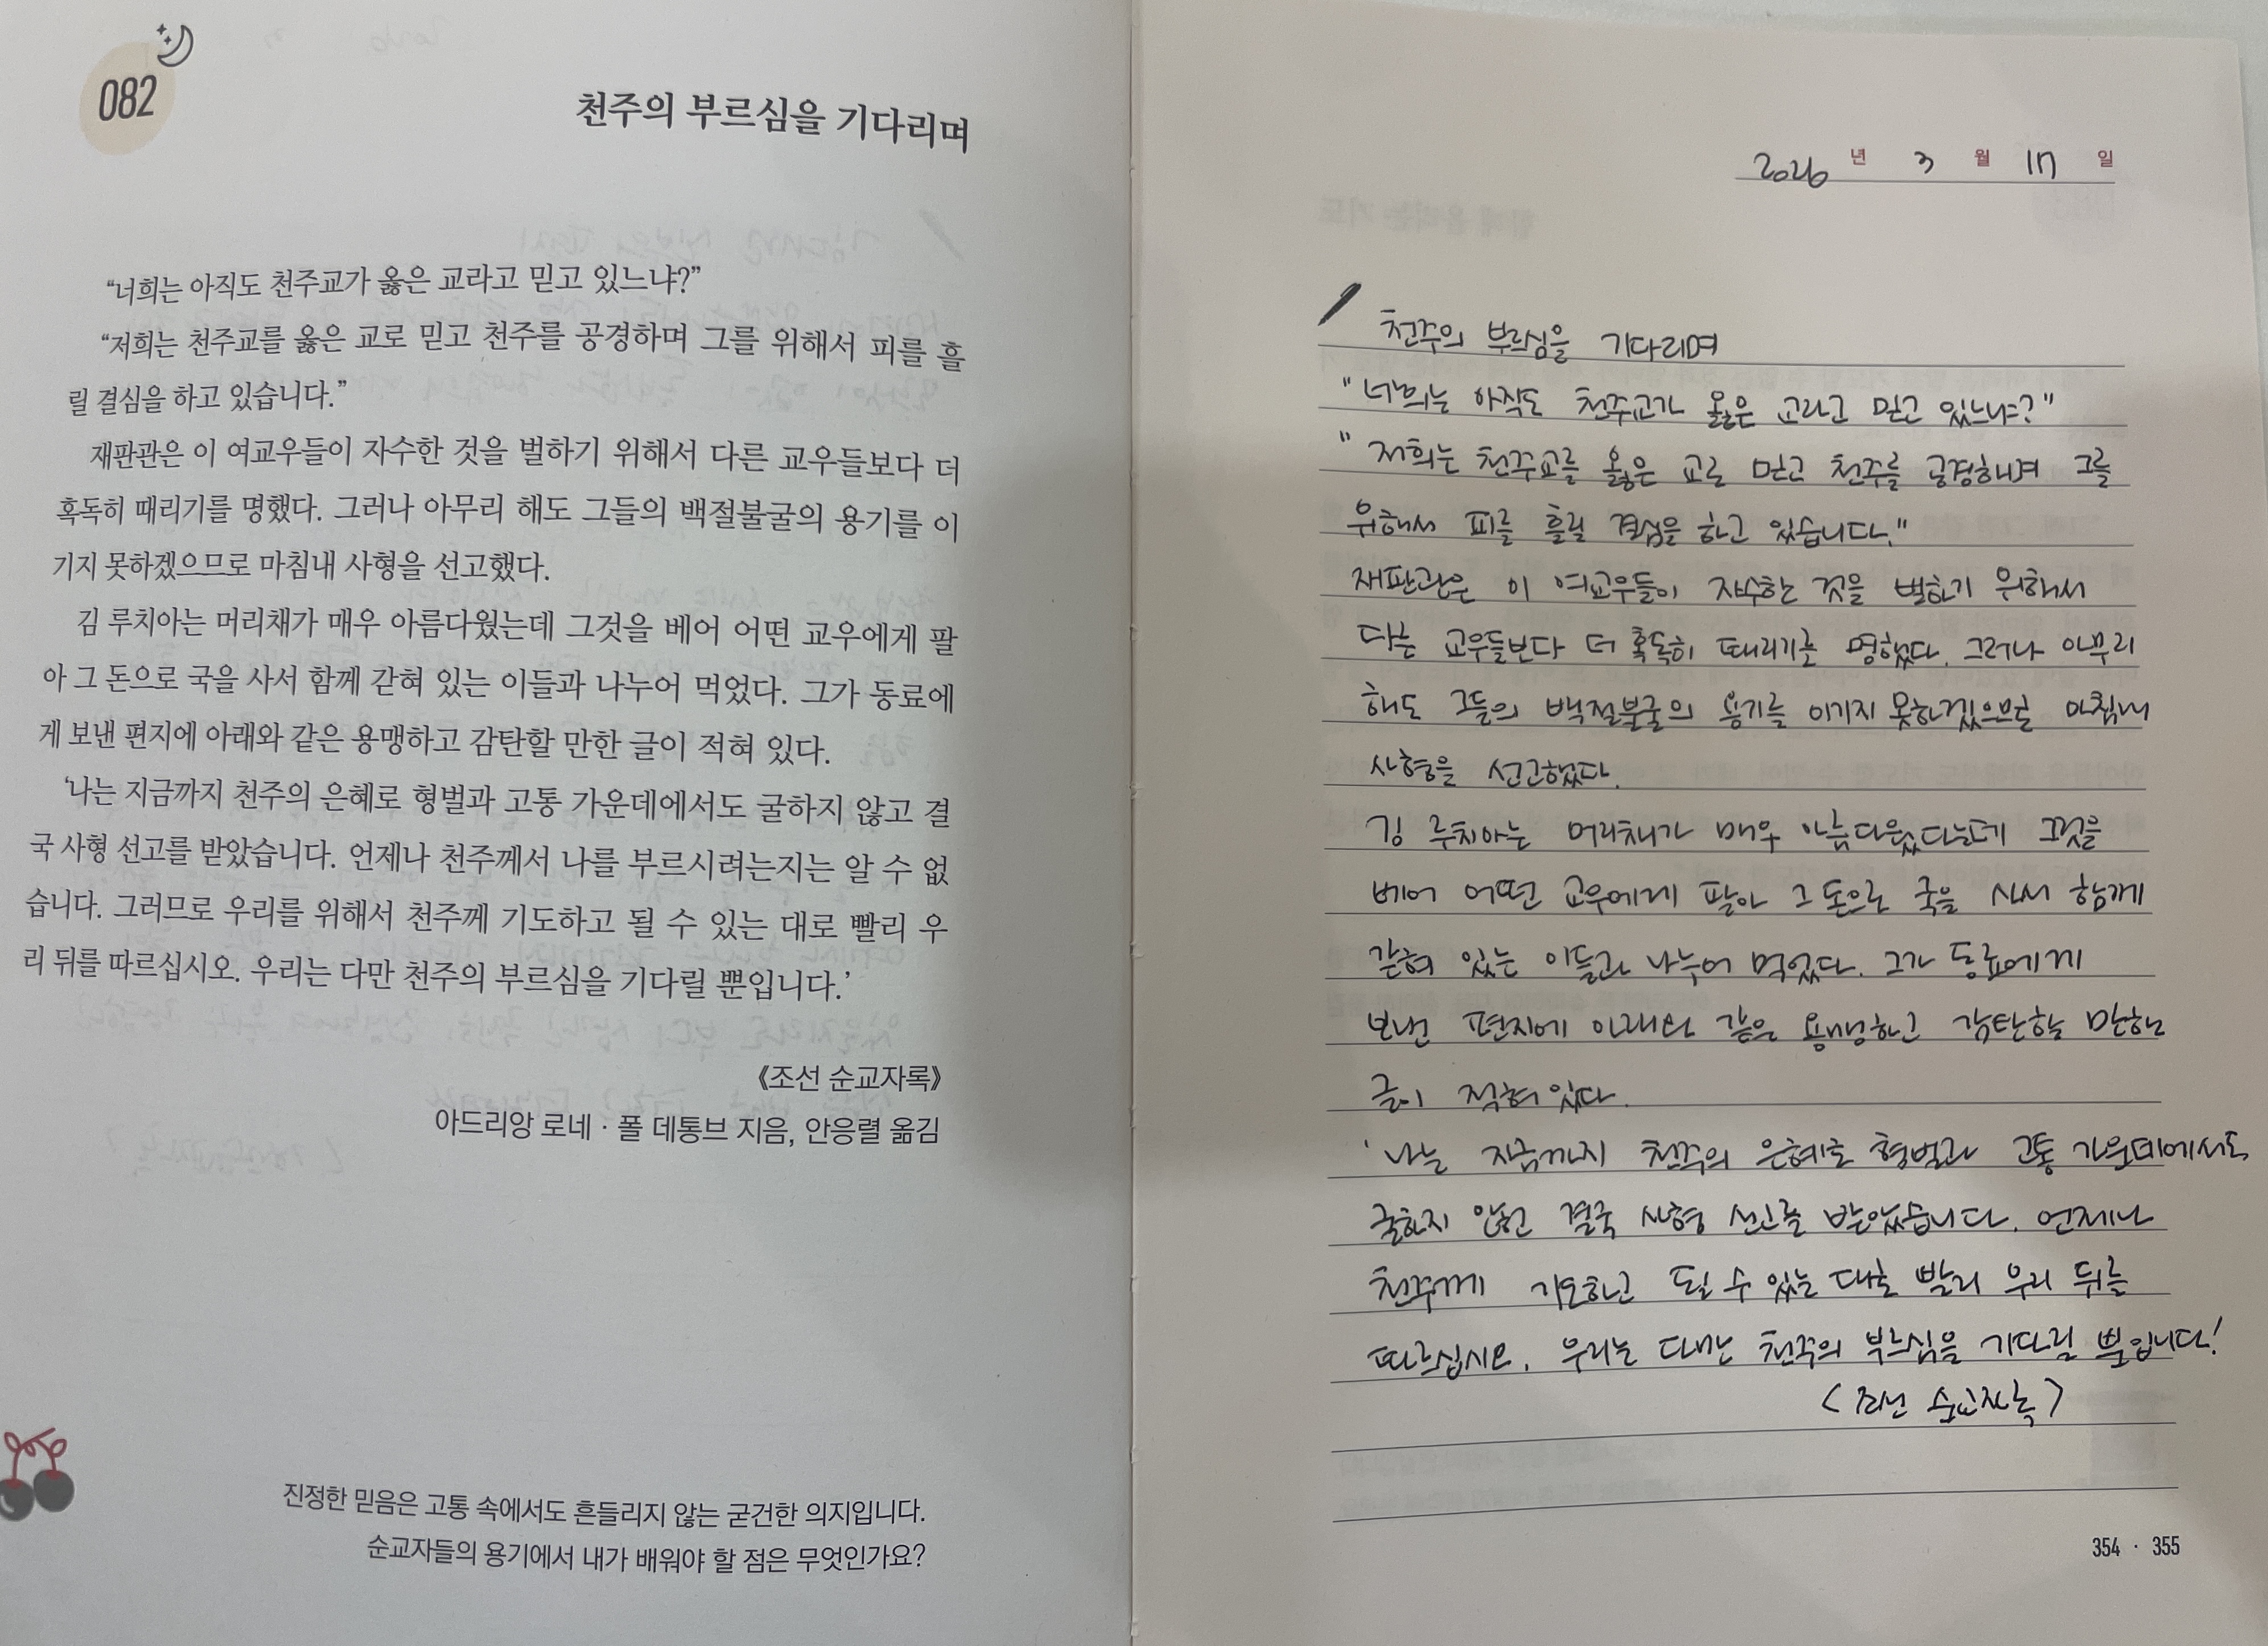 082
천주의 부르심을 기다리며
“너희는 아직도 천주교가 옳은 교라고 믿고 있느냐?”
“저희는 천주교를 옳은 교로 믿고 천주를 공경하며 그를 위해서 피를 흘
릴 결심을 하고 있습니다.”
재판관은 이 여교우들이 자수한 것을 벌하기 위해서 다른 교우들보다 더
혹독히 때리기를 명했다. 그러나 아무리 해도 그들의 백절불굴의 용기를 이
기지 못하겠으므로 마침내 사형을 선고했다.
김 루치아는 머리채가 매우 아름다웠는데 그것을 베어 어떤 교우에게 팔
아 그 돈으로 국을 사서 함께 갇혀 있는 이들과 나누어 먹었다. 그가 동료에
게 보낸 편지에 아래와 같은 용맹하고 감탄할 만한 글이 적혀 있다.
‘나는 지금까지 천주의 은혜로 형벌과 고통 가운데에서도 굴하지 않고 결
국 사형 선고를 받았습니다. 언제나 천주께서 나를 부르시려는지는 알 수 없
습니다. 그러므로 우리를 위해서 천주께 기도하고 될 수 있는 대로 빨리 우
리 뒤를 따르십시오. 우리는 다만 천주의 부르심을 기다릴 뿐입니다.’
《조선 순교자록》
아드리앙 로네 · 폴 데통브 지음, 안응렬 옮김
진정한 믿음은 고통 속에서도 흔들리지 않는 굳건한 의지입니다.
순교자들의 용기에서 내가 배워야 할 점은 무엇인가요?
2026 년 3 월 17 일
천주의 부르심을 기다리며
"너희는 아직도 천주교가 옳은 교라고 믿고 있느냐?"
"저희는 천주교를 옳은 교로 믿고 천주를 공경하며 그를
위해서 피를 흘릴 결심을 하고 있습니다."
재판관은 이 여교우들이 자수한 것을 벌하기 위해서
다른 교우들보다 더 혹독히 때리기를 명했다. 그러나 아무리
해도 그들의 백절불굴의 용기를 이기지 못하겠으므로 마침내
사형을 선고했다.
김 루치아는 머리채가 매우 아름다웠다는데 그것을
베어 어떤 교우에게 팔아 그 돈으로 국을 사서 함께
갇혀 있는 이들과 나누어 먹었다. 그가 동료에게
보낸 편지에 아래와 같은 용맹하고 감탄할 만한
글이 적혀 있다.
'나는 지금까지 천주의 은혜로 형벌과 고통 가운데에서도
굴하지 않고 결국 사형 선고를 받았습니다. 언제나
천주께 기도하고 될 수 있는 대로 빨리 우리 뒤를
따르십시오. 우리는 다만 천주의 부르심을 기다릴 뿐입니다!
<조선 순교자록>
354 · 355